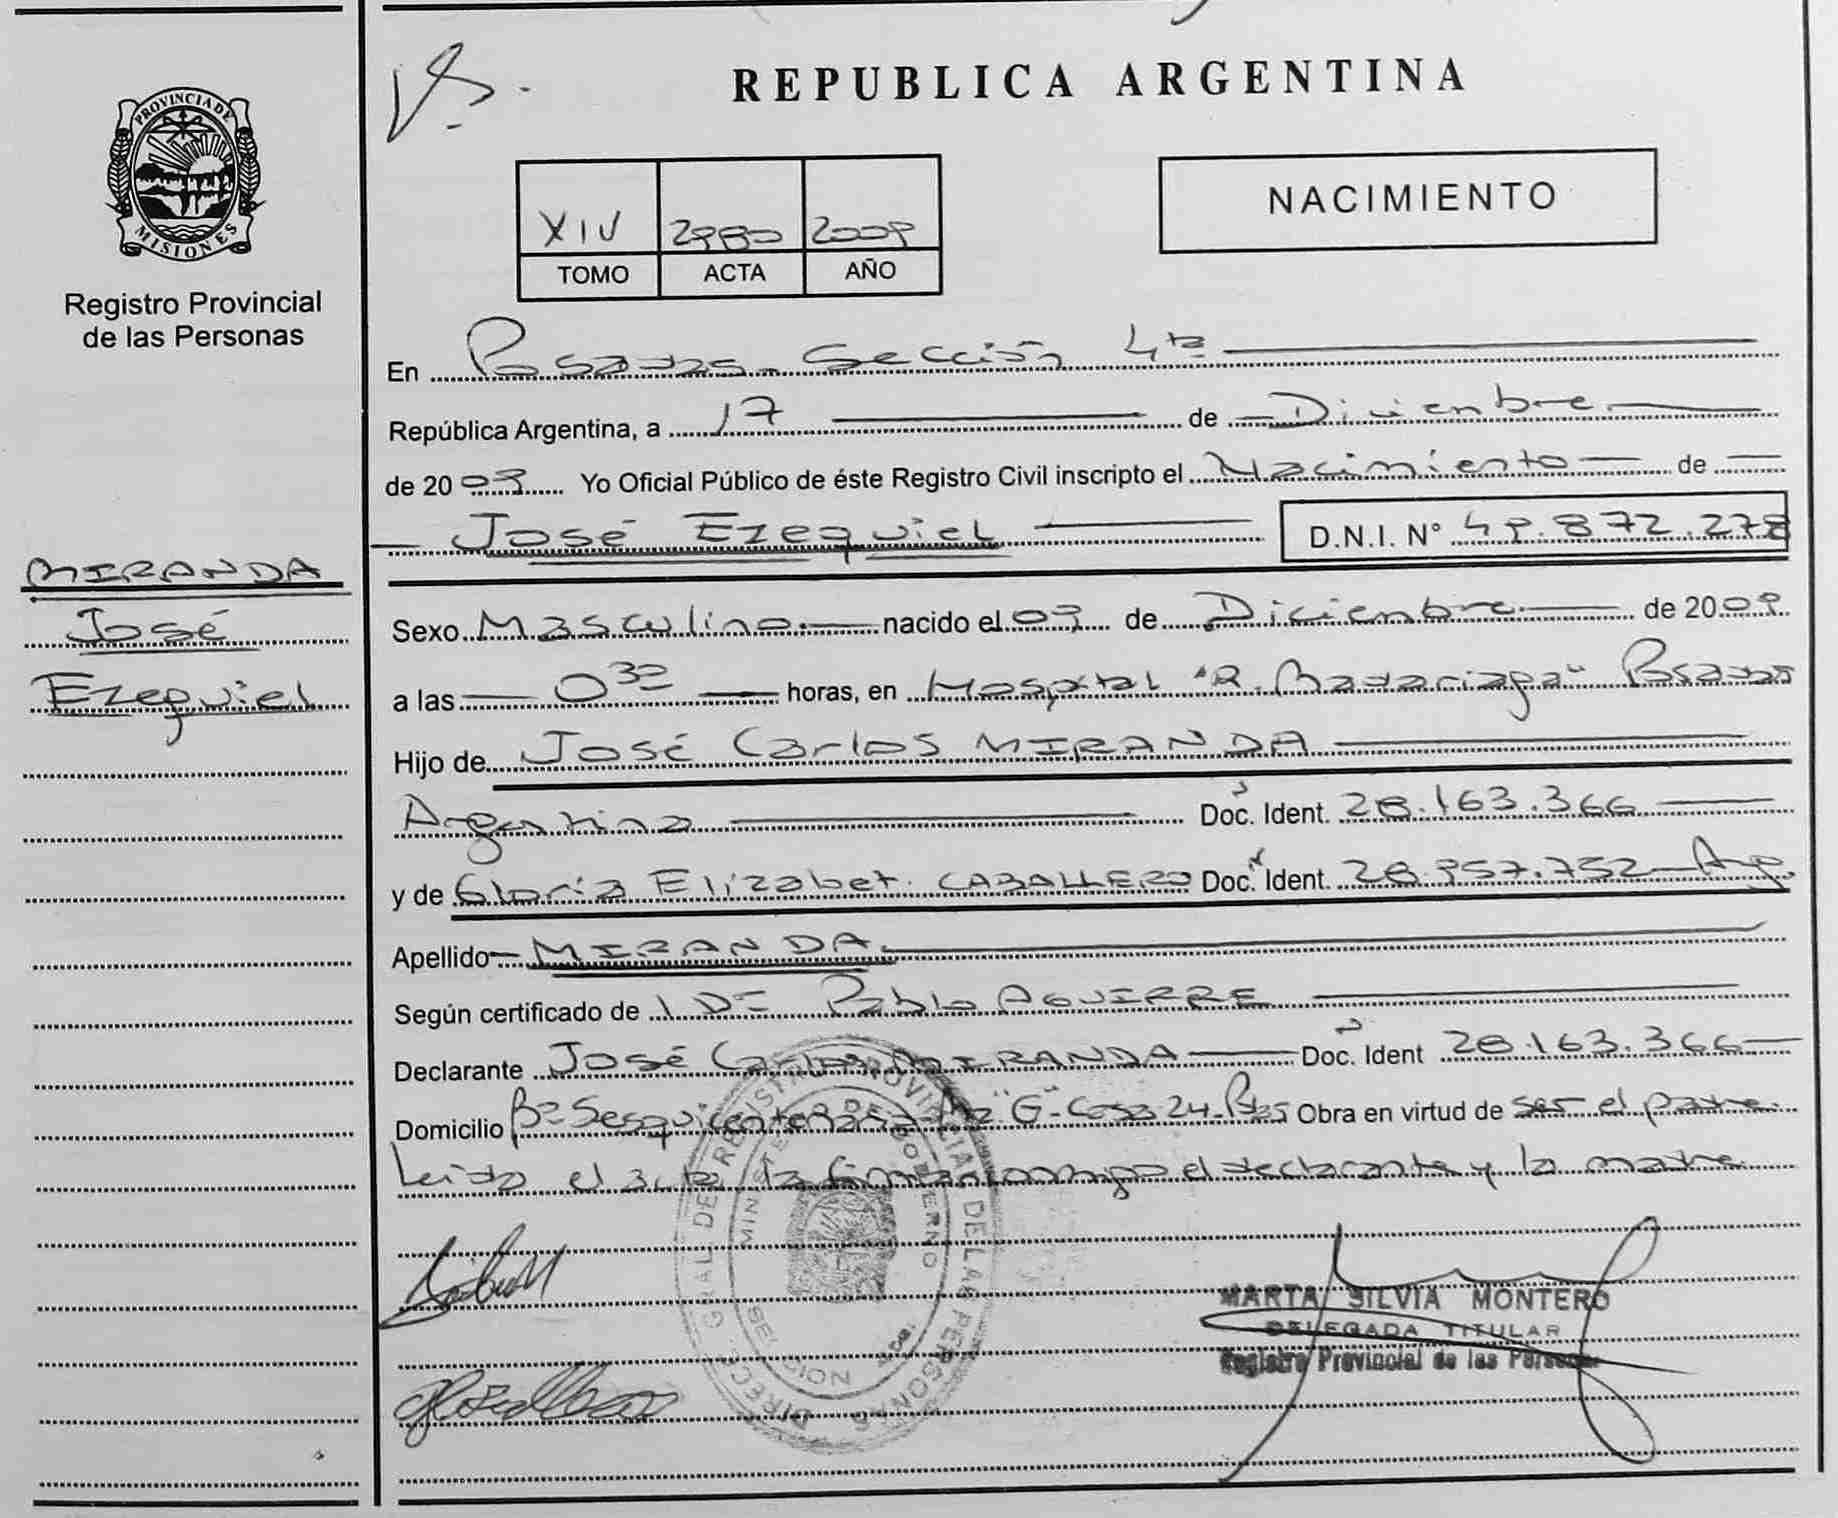 REPUBLICA ARGENTINA
PROVINCIA DE MISIONES
Registro Provincial
de las Personas
XIV 2980 2009
TOMO ACTA AÑO
NACIMIENTO
En Posadas - Sección 4ta
República Argentina, a 17 de Diciembre
de 2009 Yo Oficial Público de éste Registro Civil inscripto el Nacimiento de
José Ezequiel D.N.I. N° 49.872.278
MIRANDA
José
Ezequiel
Sexo Masculino nacido el 09 de Diciembre de 2009
a las 0 30 horas, en Hospital "R. Madariaga" Posadas
Hijo de José Carlos MIRANDA
Argentino Doc. Ident. 28.163.366
y de Gloria Elizabet. CABALLERO Doc. Ident. 28.957.752 - Arg.
Apellido MIRANDA.
Según certificado de Pablo AGUIRRE
Declarante José Carlos MIRANDA Doc. Ident 28.163.366
Domicilio Bº Sesquicentenario Mz "G" - Casa 24 - Pdas Obra en virtud de ser el padre.
Leída el acta la firman conmigo el declarante y la madre
DIRECC. GRAL. DE REGISTRO PROVINCIAL DE LAS PERSONAS
MINISTERIO DE GOBIERNO
MISIONES
MARTA SILVIA MONTERO
DELEGADA TITULAR
Registro Provincial de las Personas